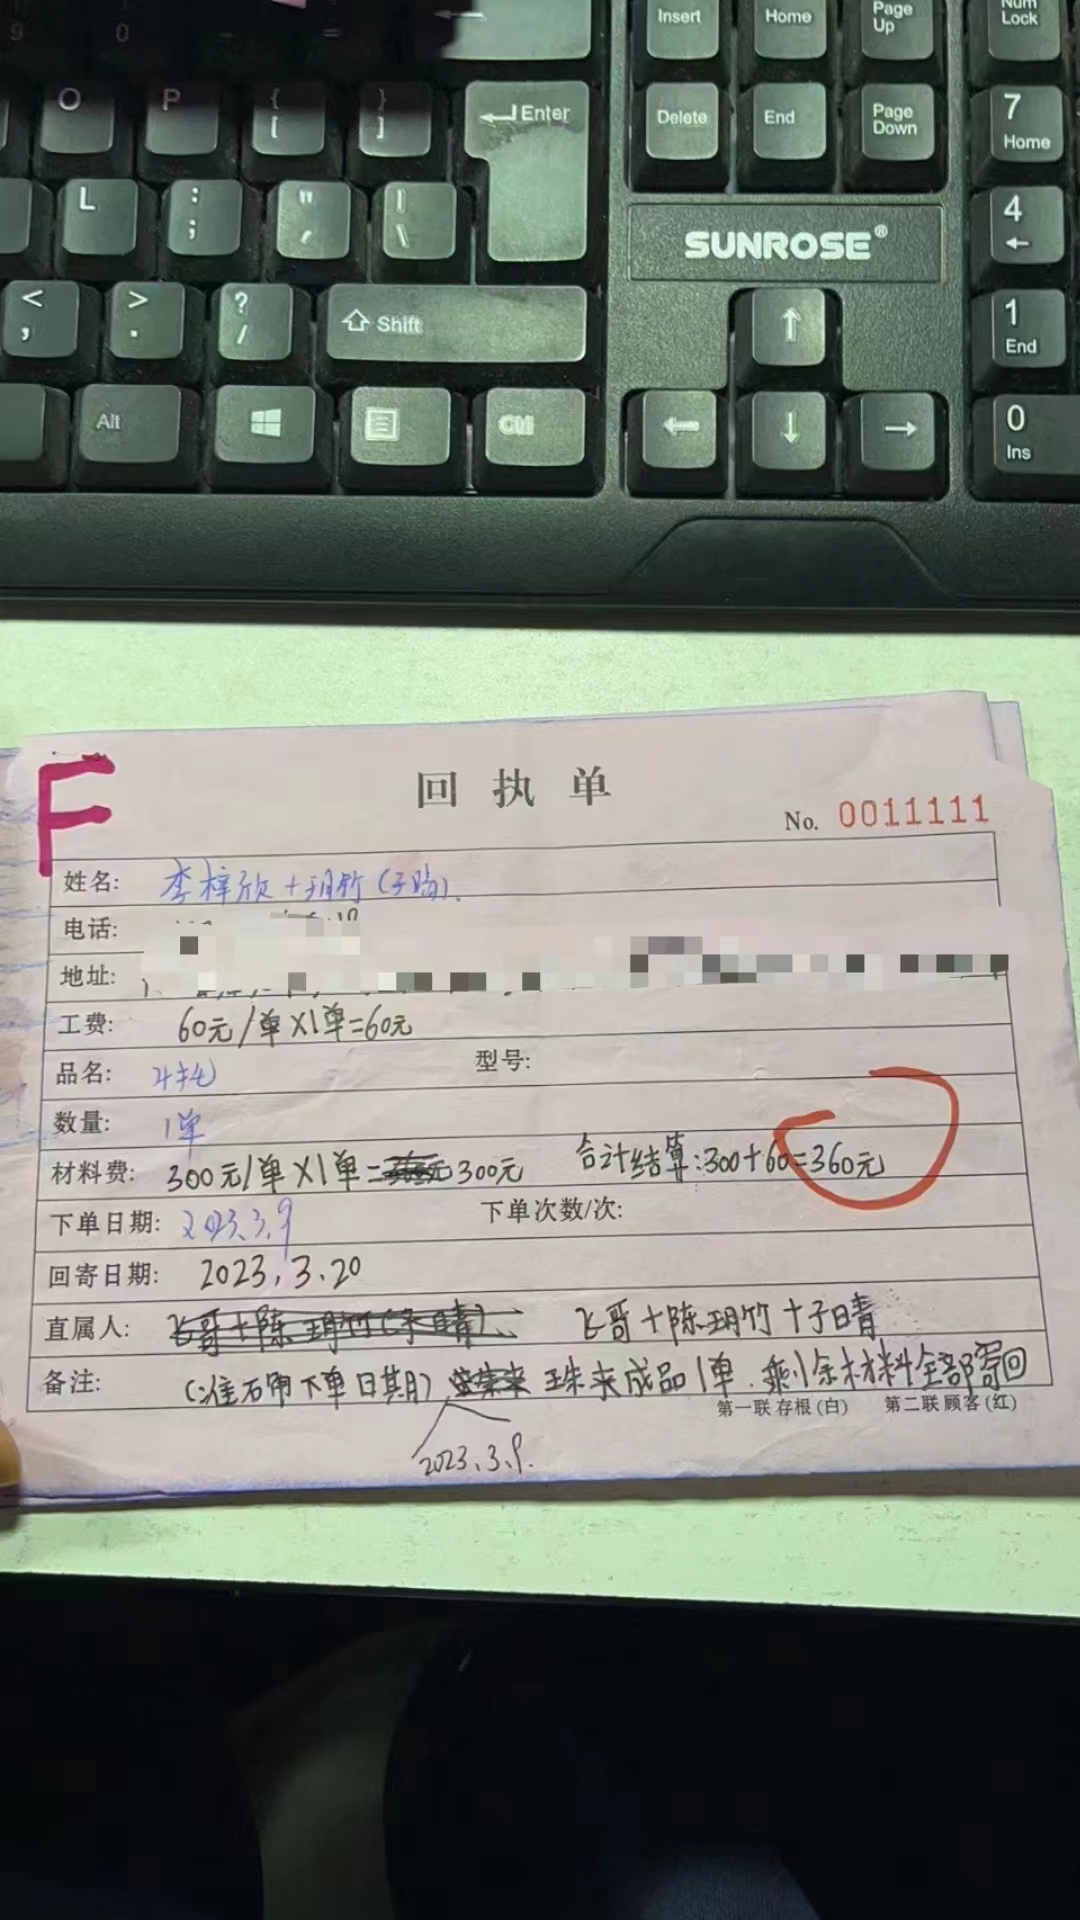 9 0 - =
Insert Home Page Up Num Lock
O P { [ } ] Enter Delete End Page Down 7 Home
L : ; " ' | \ SUNROSE® 4
< , > . ? / Shift 1 End
Alt Ctrl 0 Ins
F
回执单
No. 0011111
姓名: 李梓欣+玥竹(子晴).
电话:
地址:
工费: 60元/单X1单=60元
品名: 型号:
数量: 1单
材料费: 300元/单X1单=300元 合计结算:300+60=360元
下单日期: 2023.3.9 下单次数/次:
回寄日期: 2023.3.20
直属人: 飞哥+陈玥竹(子晴) 飞哥+陈玥竹+子晴
备注: 下单日期) 珠夹成品1单.剩余材料全部寄回
第一联 存根(白) 第二联 顾客(红)
2023.3.9.